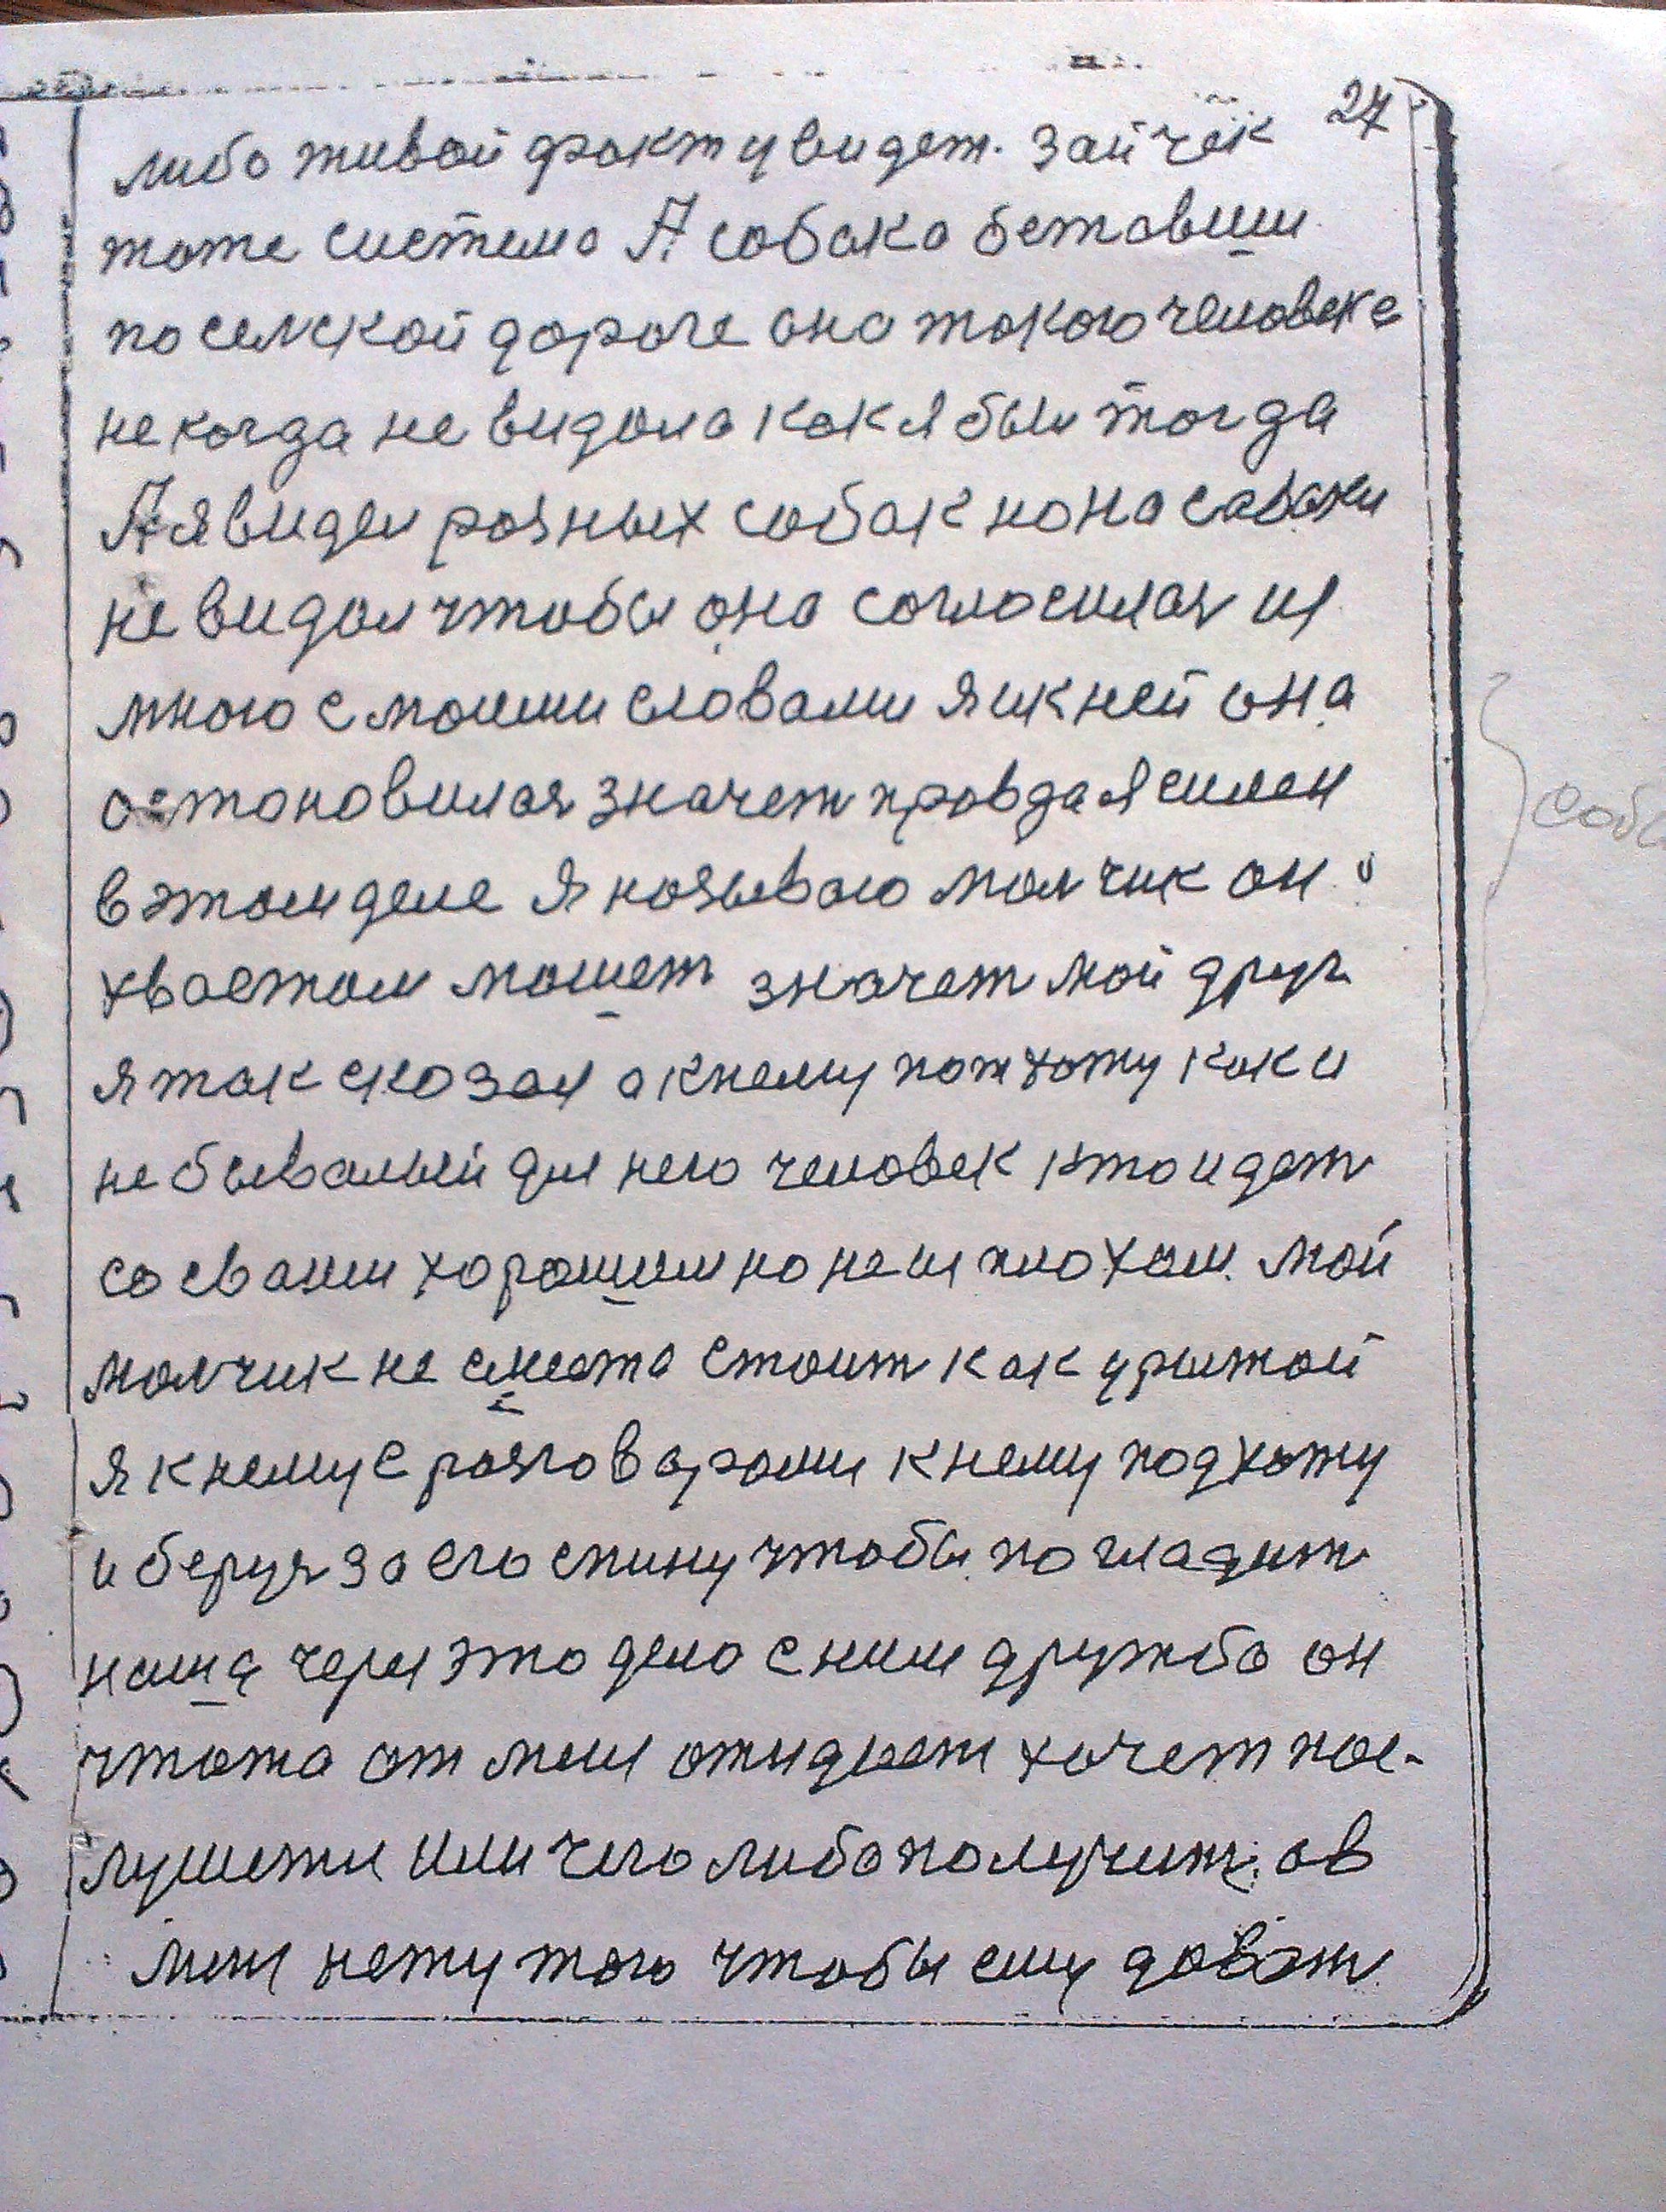 27
либо живой факт увидет. зайчек
тоже система А собака бежавши
по селской дороге она такого человека
не когда не видала как я был тогда
А я видел разных собак но на собаки
не видал чтобы она согласилая из
мною с моими словами я ик ней она
остоновилая значет правда я силен
в этом деле я называю малчик он
хвостом мошет значет мой друг
я так сказал а к нему потхожу как и
не бывалый для него человек кто идет
со сваим хорошим но не из плохам. мой
малчик не смеота стоит как урытой
я к нему с разговорами к нему подхожу
и беруя за его спину чтобы погладит
наша через это дело с ним дружба он
чтото от мене ожидает хочет пос-
лушетя или чего либо получит, ав
мене нету того чтобы ему доват
соба